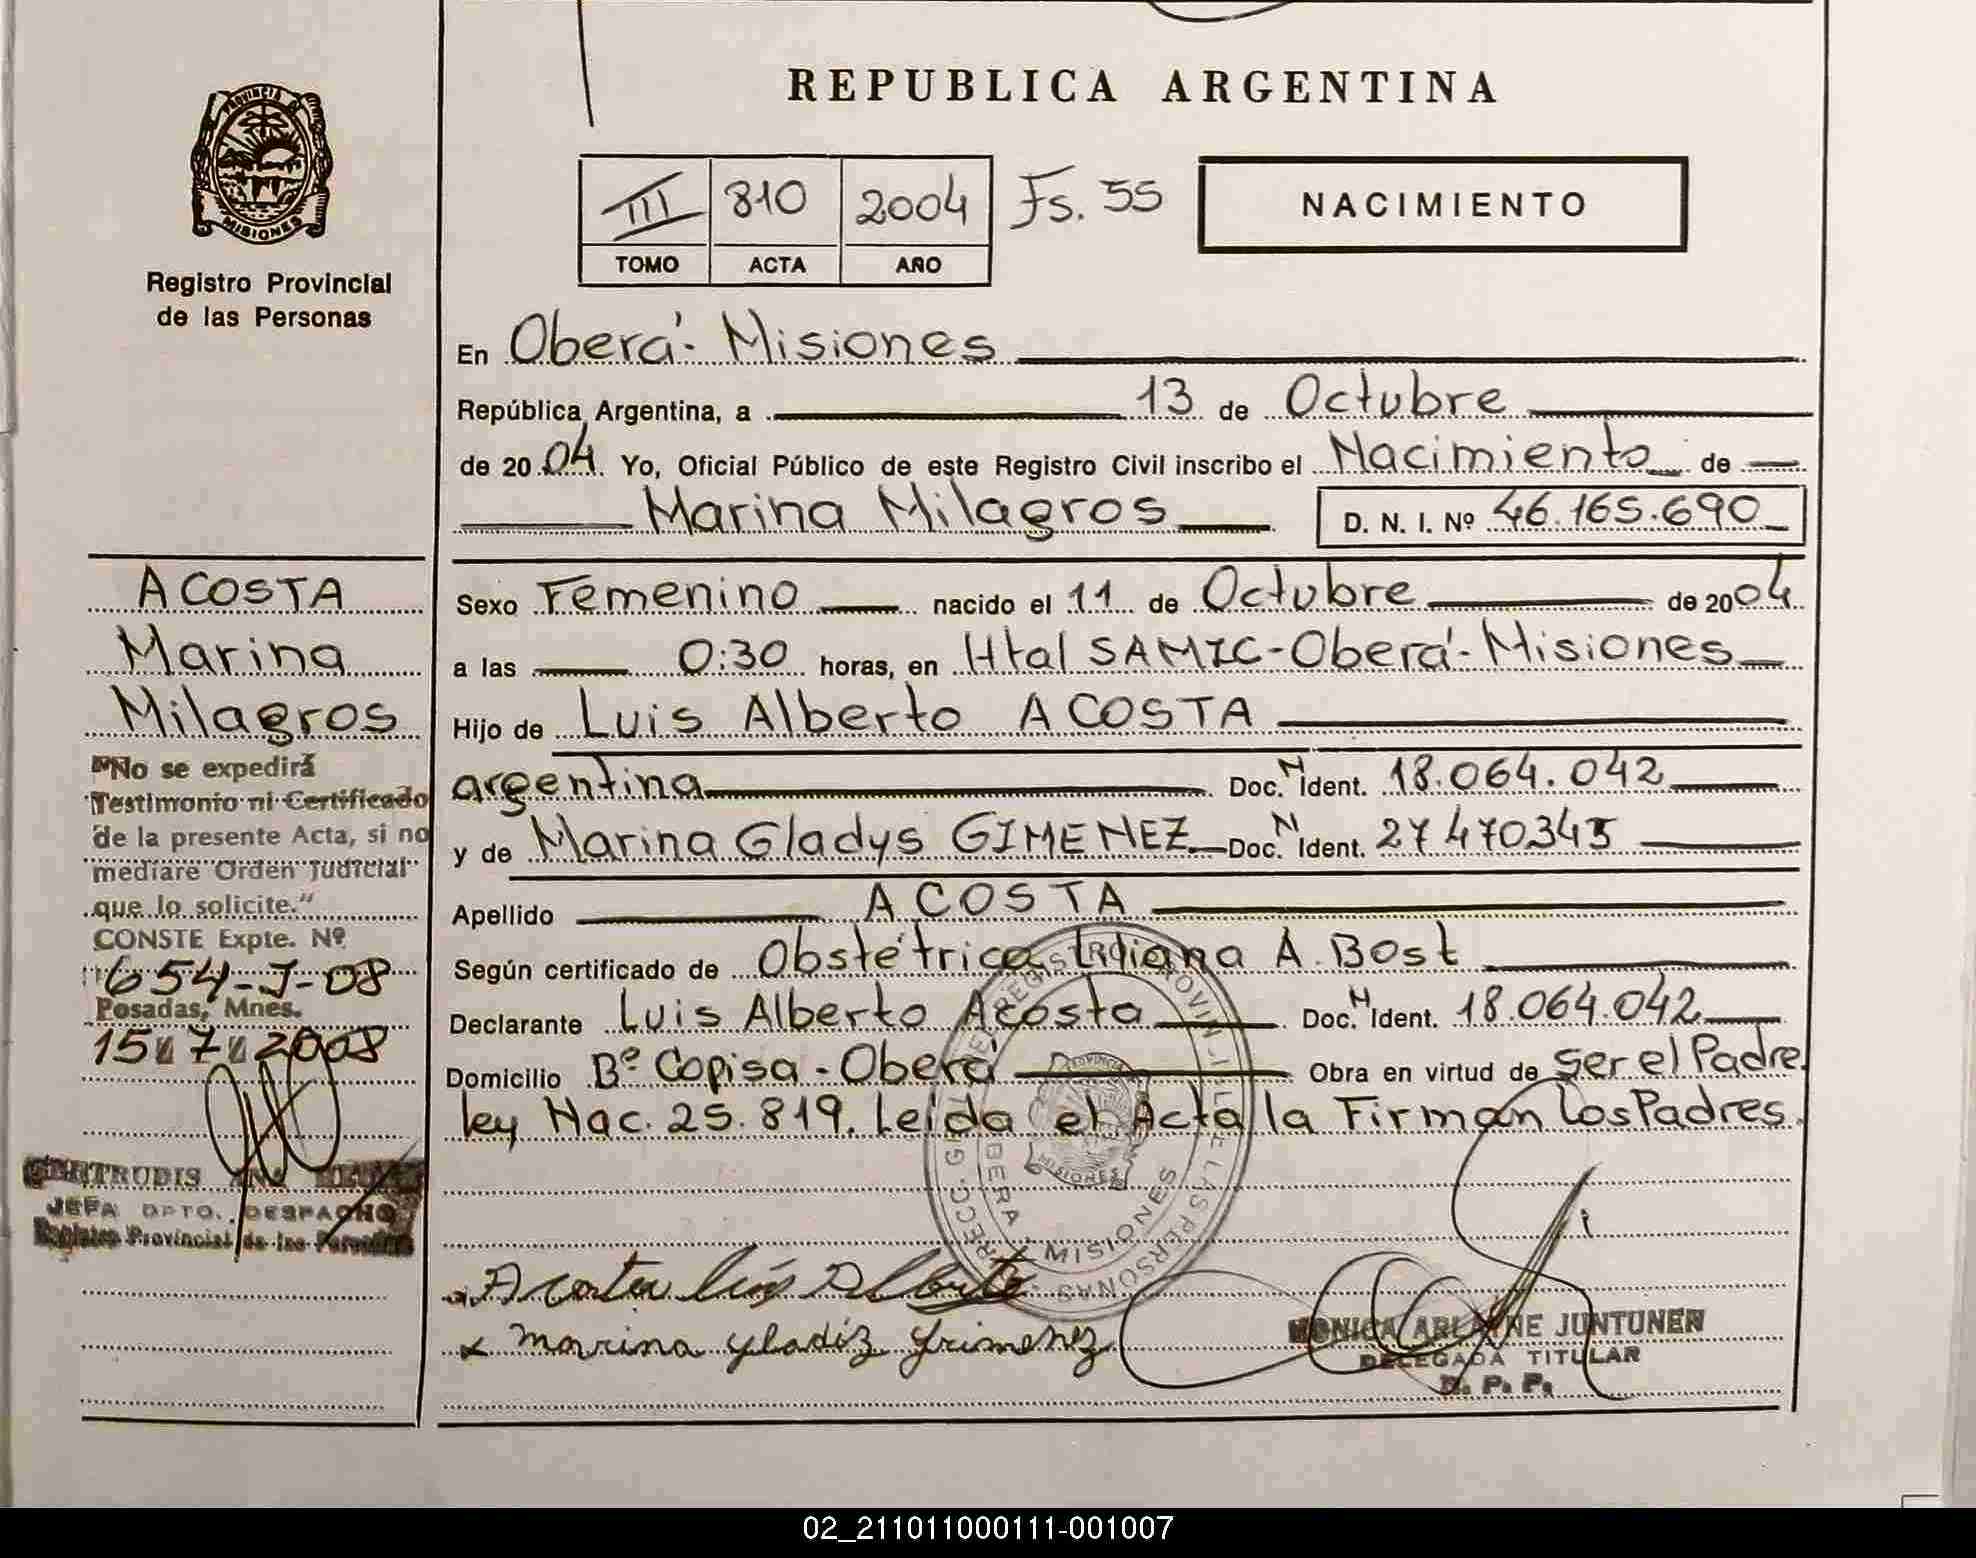 REPUBLICA ARGENTINA
PROVINCIA DE
MISIONES
Registro Provincial
de las Personas
III 810 2004 Fs. 55
TOMO ACTA AÑO
NACIMIENTO
En Oberá - Misiones
República Argentina, a 13 de Octubre
de 2004. Yo, Oficial Público de este Registro Civil inscribo el Nacimiento de
Marina Milagros D. N. I. Nº 46.165.690
Sexo Femenino nacido el 11 de Octubre de 2004
a las 0:30 horas, en Htal SAMIC-Oberá-Misiones
Hijo de Luis Alberto ACOSTA
argentina Doc. N Ident. 18.064.042
y de Marina Gladys GIMENEZ Doc. N Ident. 27470345
Apellido ACOSTA
Según certificado de Obstétrica A. Bost
Declarante Luis Alberto Acosta Doc. N Ident. 18.064.042
Domicilio Bº Copisa - Oberá Obra en virtud de ser el Padre
ley Nac. 25.819. Leída el Acta la Firman los Padres.
Acosta Luis Alberto
x marina gladiz gimenez
MONICA ARLAYNE JUNTUNEN
DELEGADA TITULAR
R. P. P.
OBERA MISIONES
ACOSTA
Marina
Milagros
"No se expedirá
Testimonio ni Certificado
de la presente Acta, si no
mediare Orden Judicial
que lo solicite."
CONSTE Expte. Nº
654-J-08
Posadas, Mnes.
15 7 2008
GERTRUDIS
JEFA DPTO. DESPACHO
Registro Provincial de las Personas
02_211011000111-001007